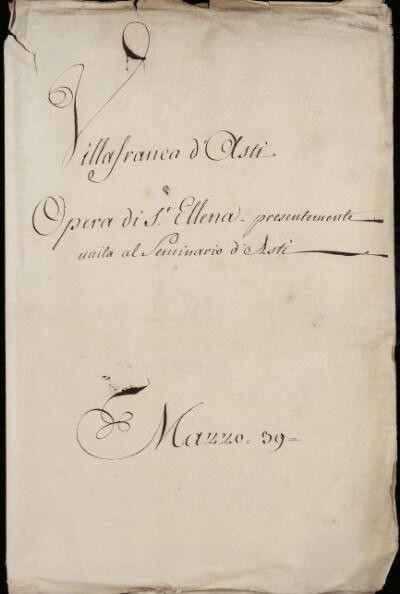 Villafranca d'Asti.
Opera di S.t Ellena - presentemente
unita al Seminario d'Asti
Mazzo. 39 =